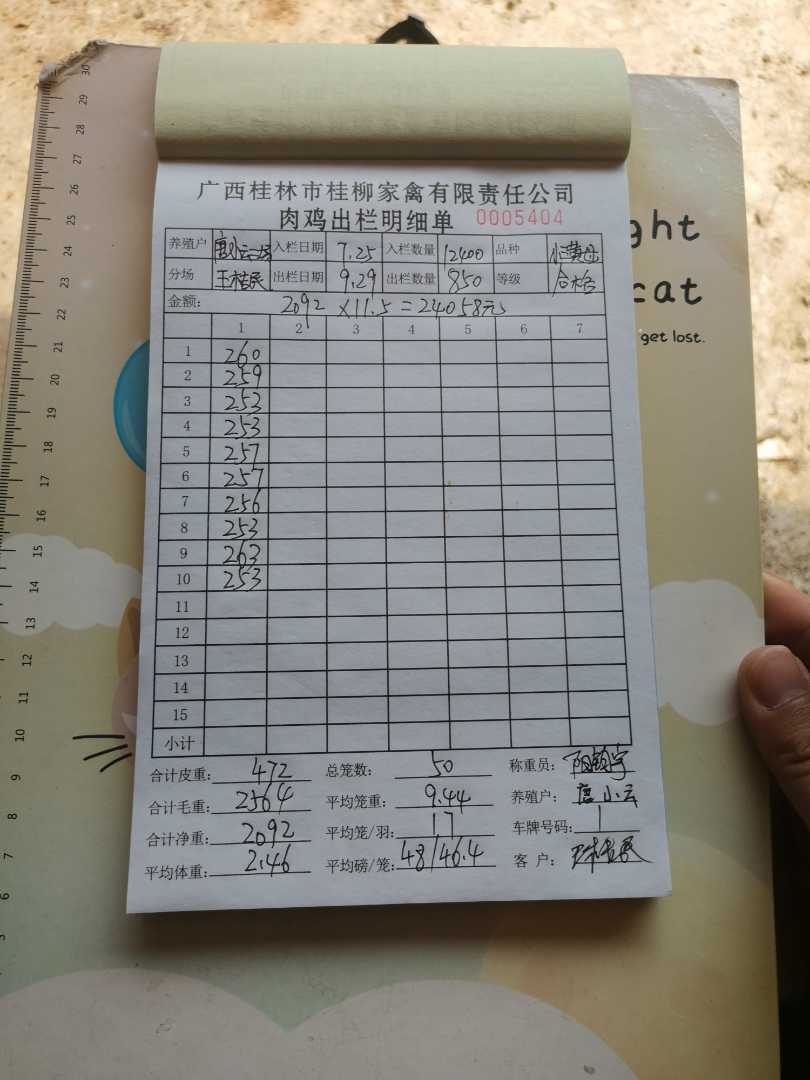 广西桂林市桂柳家禽有限责任公司
肉鸡出栏明细单 0005404
养殖户 唐小云 入栏日期 7.25 入栏数量 12400 品种
分场 王桂民 出栏日期 9.29 出栏数量 850 等级 合格
金额: 2092×11.5=24058元
1 2 3 4 5 6 7
1 260
2 259
3 253
4 253
5 257
6 257
7 256
8 253
9 263
10 253
11
12
13
14
15
小计
合计皮重: 472 总笼数: 50 称重员:
合计毛重: 2564 平均笼重: 9.44 养殖户: 唐小云
合计净重: 2092 平均笼/羽: 17 车牌号码: 1
平均体重: 2.46 平均磅/笼: 48/46.4 客户:
ght
cat
get lost.
30
29
28
27
26
25
24
23
22
21
20
19
18
17
16
15
14
13
12
11
10
9
8
7
6
5